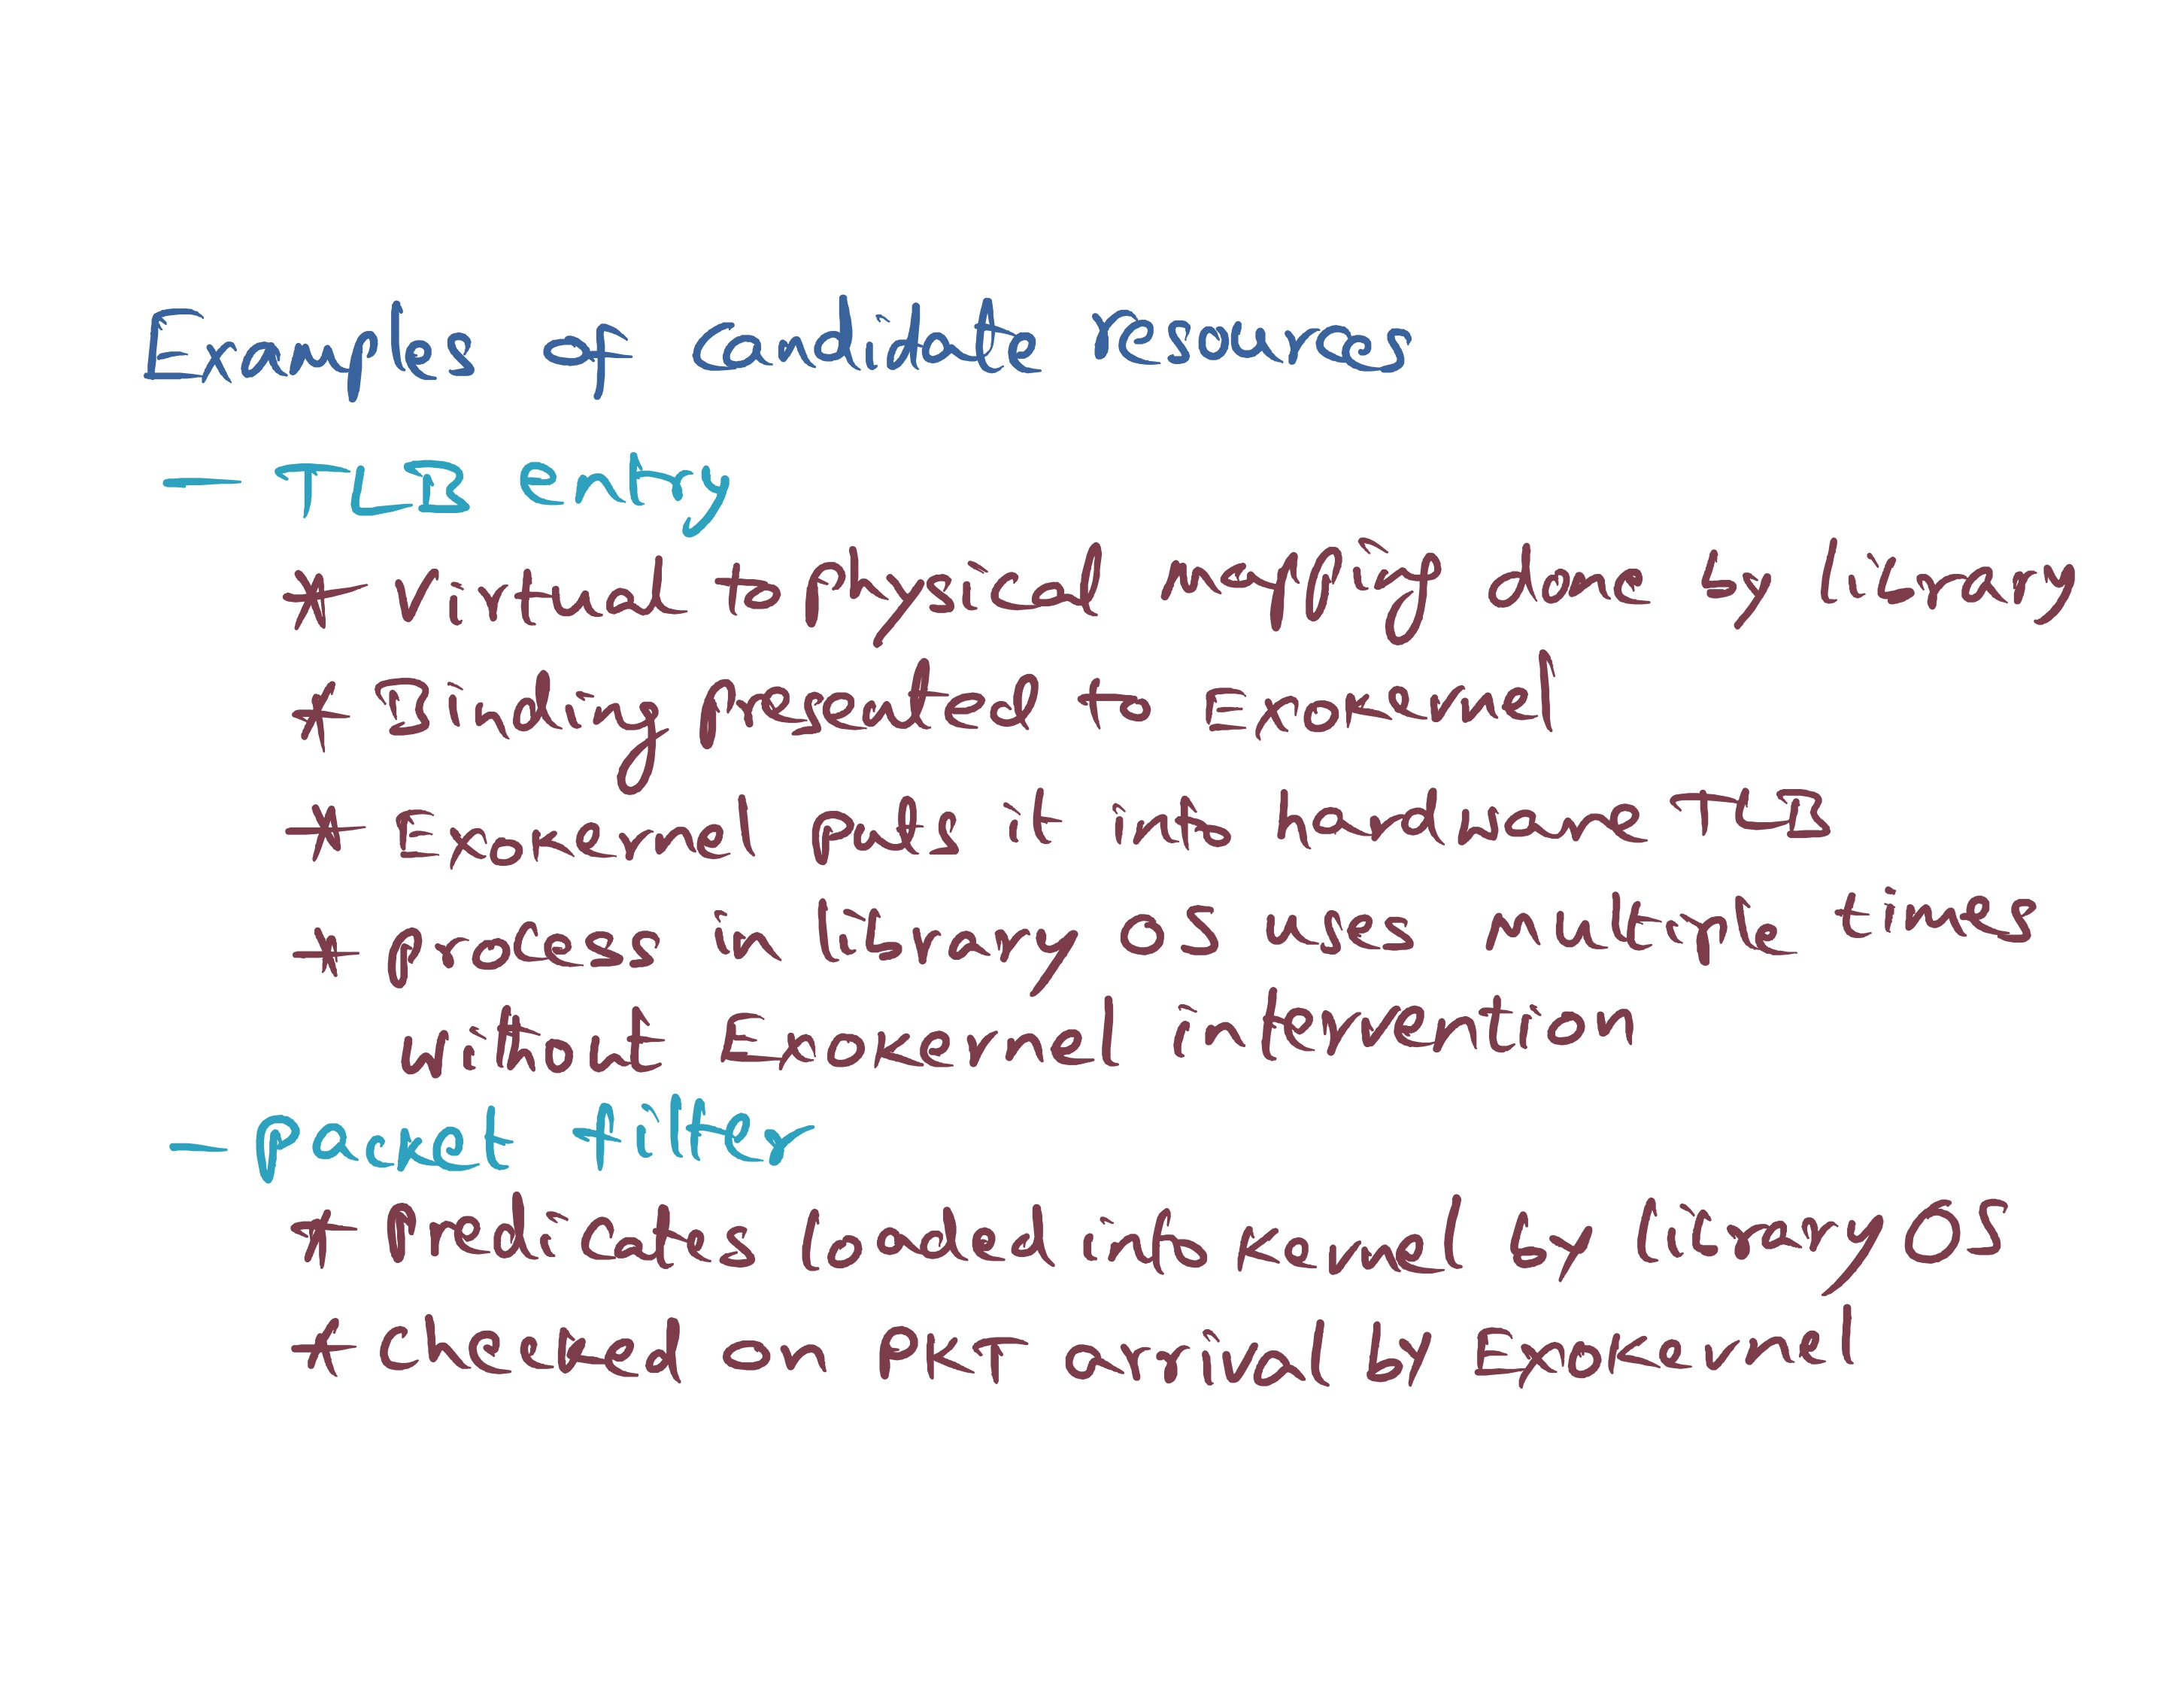 Examples of candidate resources
— TLB entry
* Virtual to physical mapping done by library
* Binding presented to Exokernel
* Exokernel puts it into hardware TLB
* process in library OS uses multiple times
without Exokernel intervention
- packet filter
* Predicates loaded into kernel by library OS
* Checked on PKT arrival by Exokernel